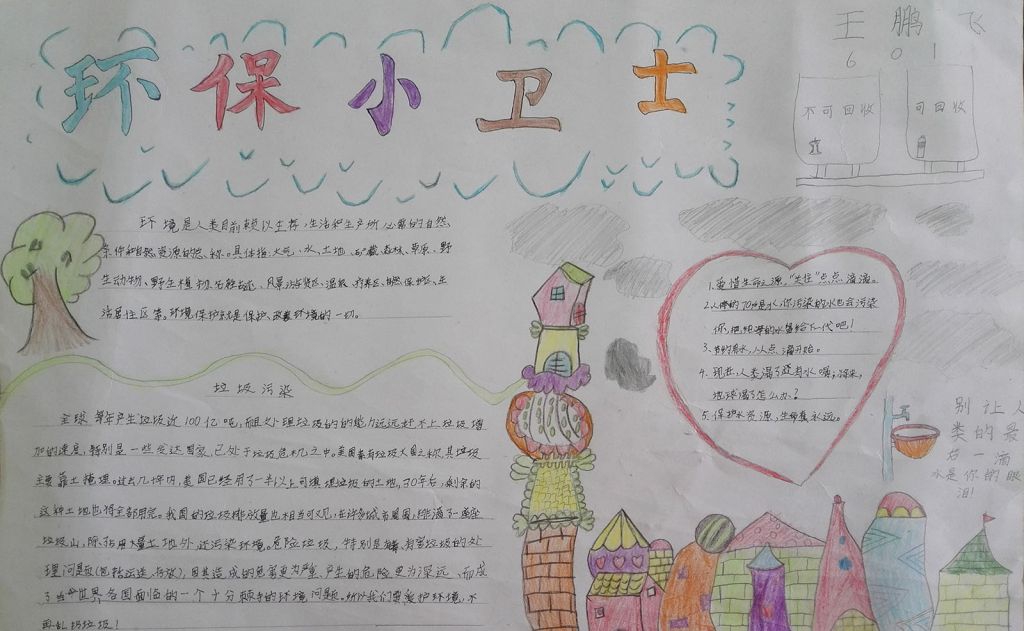 环保小卫士
王鹏飞
601
不可回收
可回收
环境是人类目前赖以生存,生活和生产所必需的自然
条件和自然资源的总称。具体指:大气、水、土地、矿藏、森林、草原、野
生动物、野生植物、名胜古迹、风景游览区、温泉、疗养区、自然保护区、生
活居住区等。环境保护就是保护、改善环境的一切。
1.爱惜生命之源,“关住”点点滴滴。
2.人体的70%是水,你污染的水也会污染
你,把纯净的水留给下一代吧!
3.节约用水,从点滴开始。
4.现在,人类渴了有水喝,将来,
地球渴了怎么办?
5.保护水资源,生命真永远。
垃圾污染
全球每年产生垃圾近100亿吨,而且处理垃圾的的能力远远赶不上垃圾增
加的速度,特别是一些发达国家,已处于垃圾危机之中。美国素有垃圾大国之称,其垃圾
主要靠土掩埋。过去几十年内,美国已经用了一半以上可填埋垃圾的土地,30年后,剩余的
这种土地也将全部用完。我国的垃圾排放量也相当可观,在许多城市周围,排满了一座座
垃圾山,除占用大量土地外,还污染环境。危险垃圾,特别是有毒、有害垃圾的处
理问题(包括运送、存放),因其造成的危害更为严重,产生的危险更为深远,而成
了当今世界各国面临的一个十分棘手的环境问题。所以我们要爱护环境,不
再乱扔垃圾!
别让人
类的最
后一滴
水是你的眼
泪!